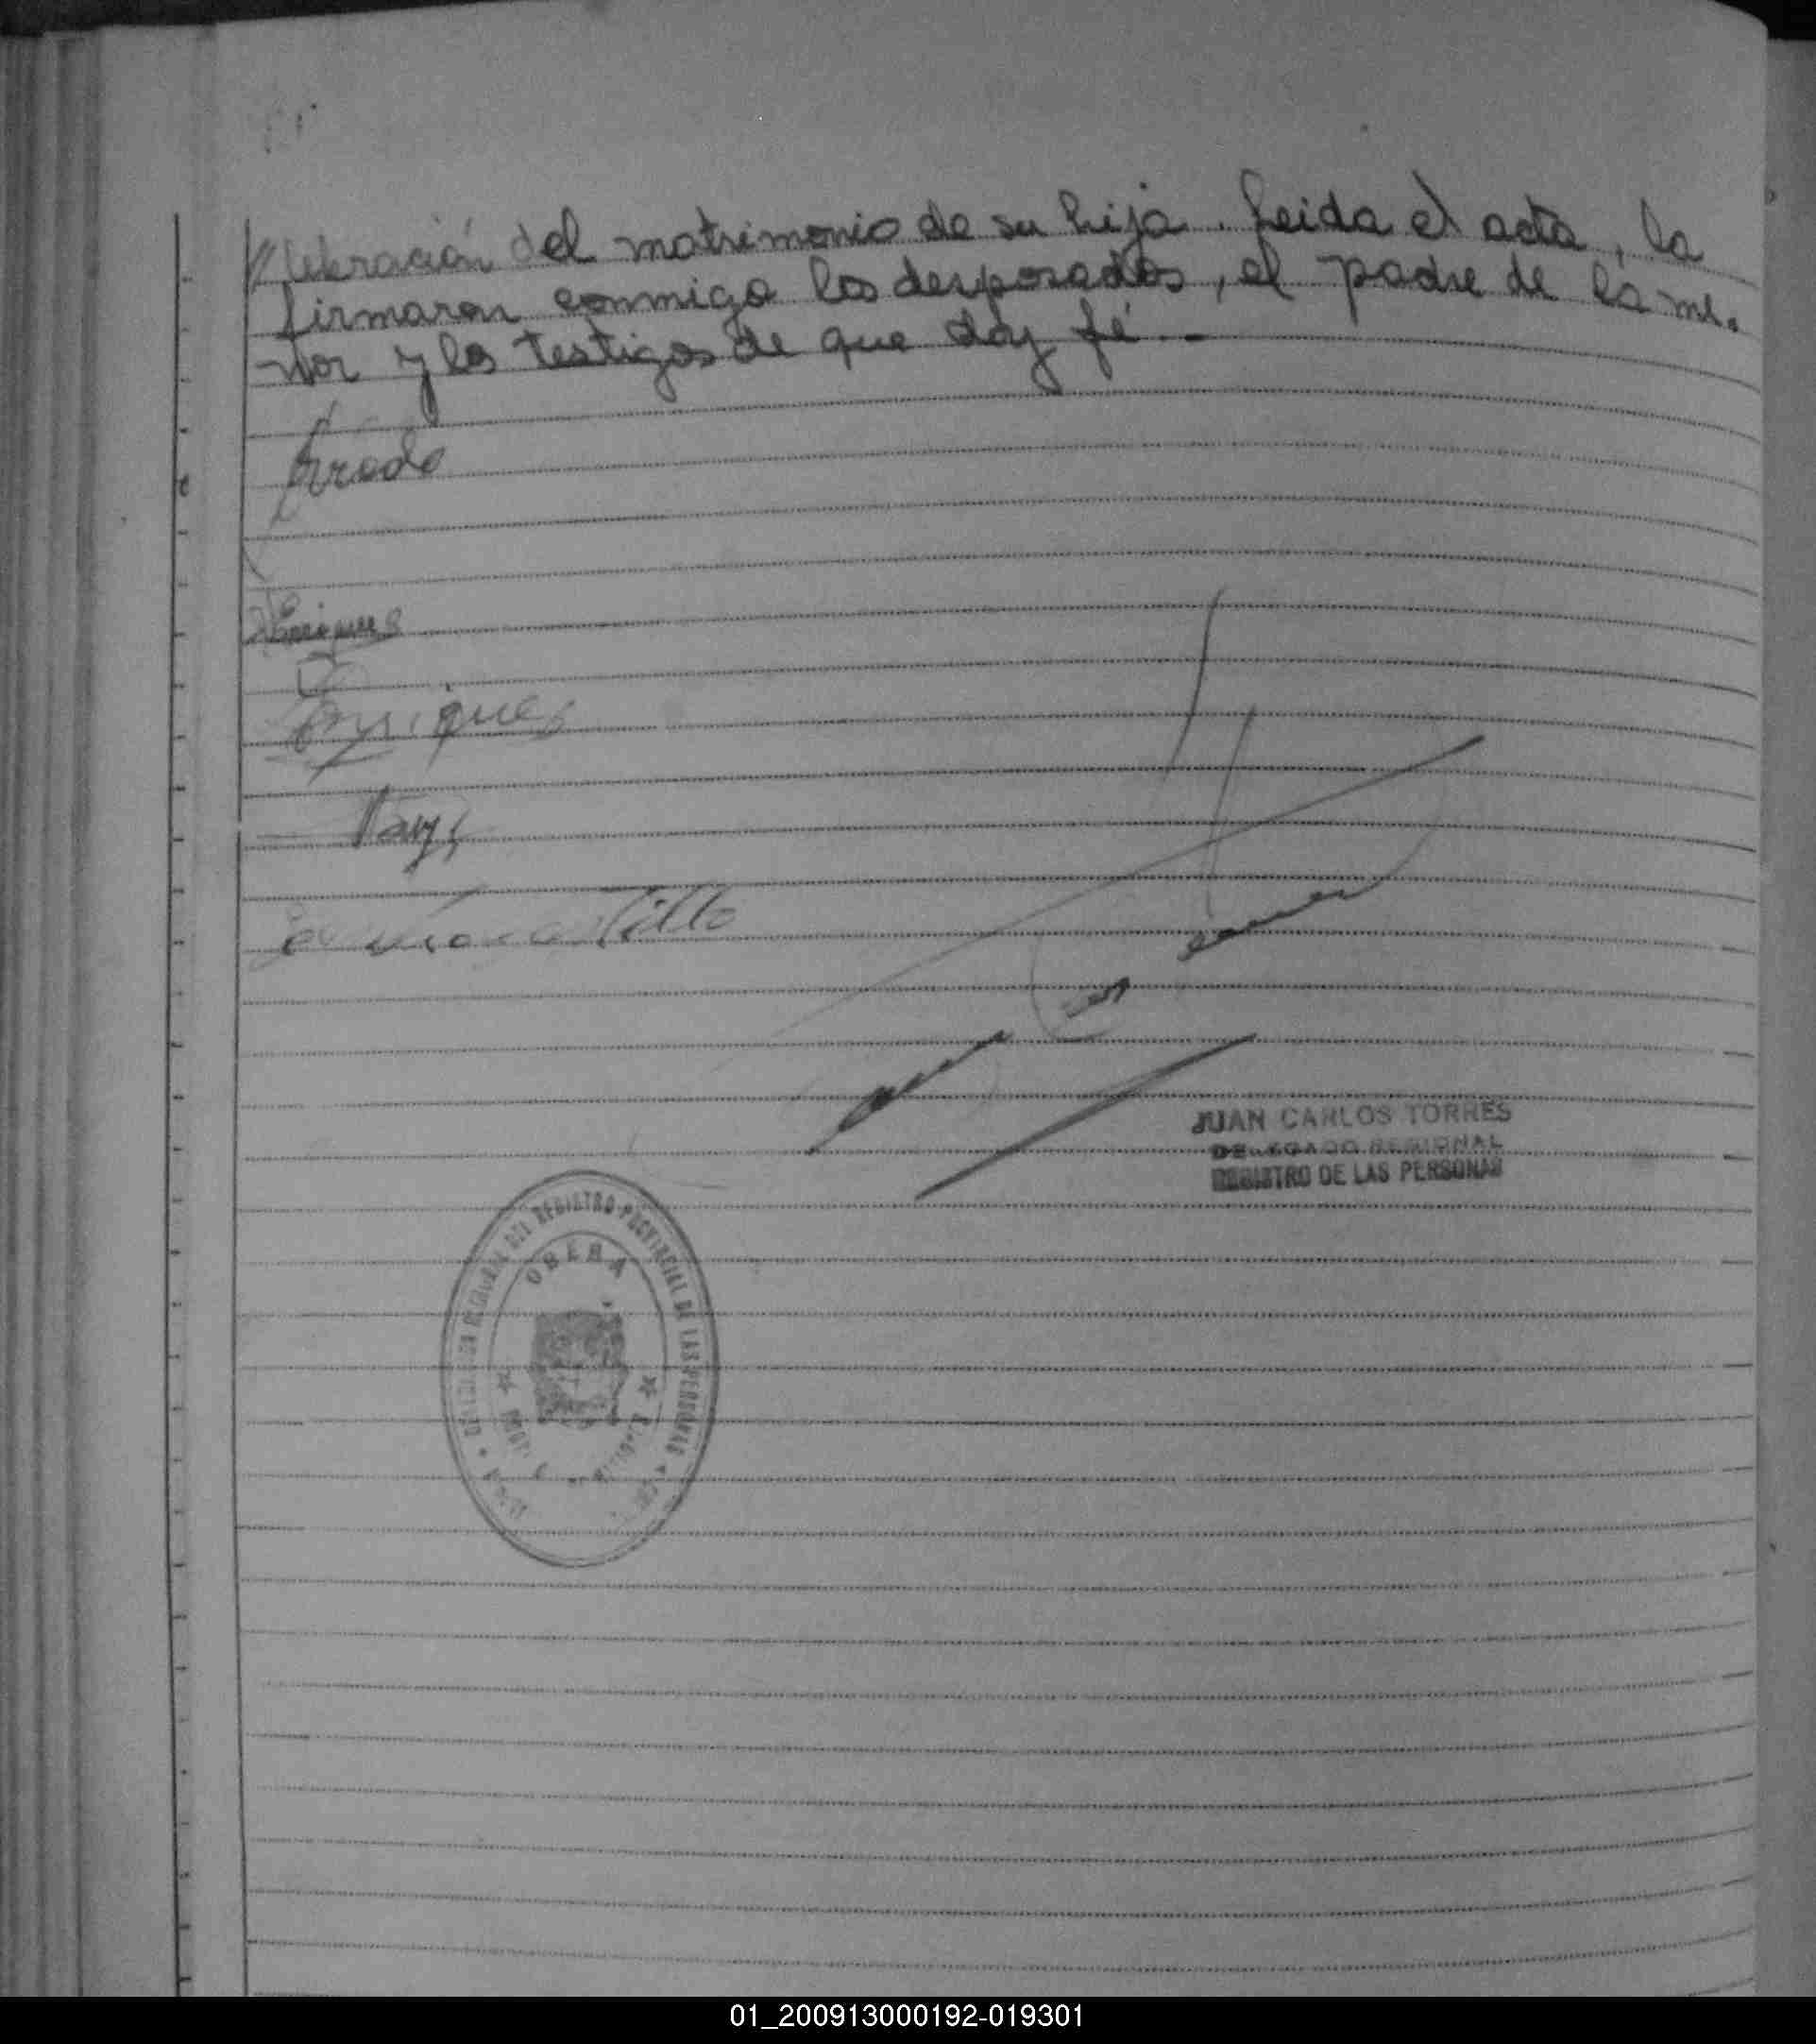 //lebración del matrimonio de su hija. Leida el acta, la
firmaron conmigo los desposados, el padre de la me-
nor y los testigos de que doy fé.-
Prado
Enriques
JUAN CARLOS TORRES
DELEGADO REGIONAL
REGISTRO DE LAS PERSONAS
DELEGACION REGIONAL DEL REGISTRO PROVINCIAL DE LAS PERSONAS
OBERA
01_200913000192-019301